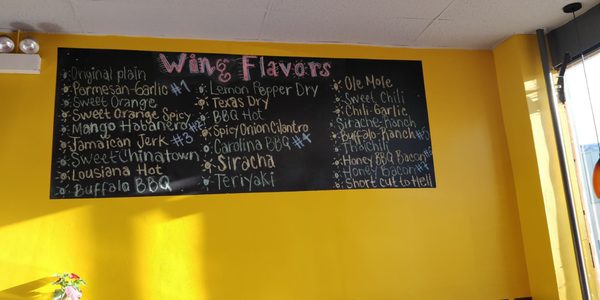 Wing Flavors
Original plain
Parmesan-Garlic #1
Sweet Orange
Sweet Orange Spicy
Mango Habanero #2
Jamaican Jerk #3
Sweet Chinatown
Lousiana Hot
Buffalo BBQ
Lemon Pepper Dry
Texas Dry
BBQ Hot
Spicy Onion Cilantro
Carolina BBQ #4
Siracha
Teriyaki
Ole Mole
Sweet Chili
Chili-Garlic
Sirache-Ranch
Buffalo-Ranch #5
Thai Chili
Honey BBQ Bacon
Honey Bacon
Short cut to Hell